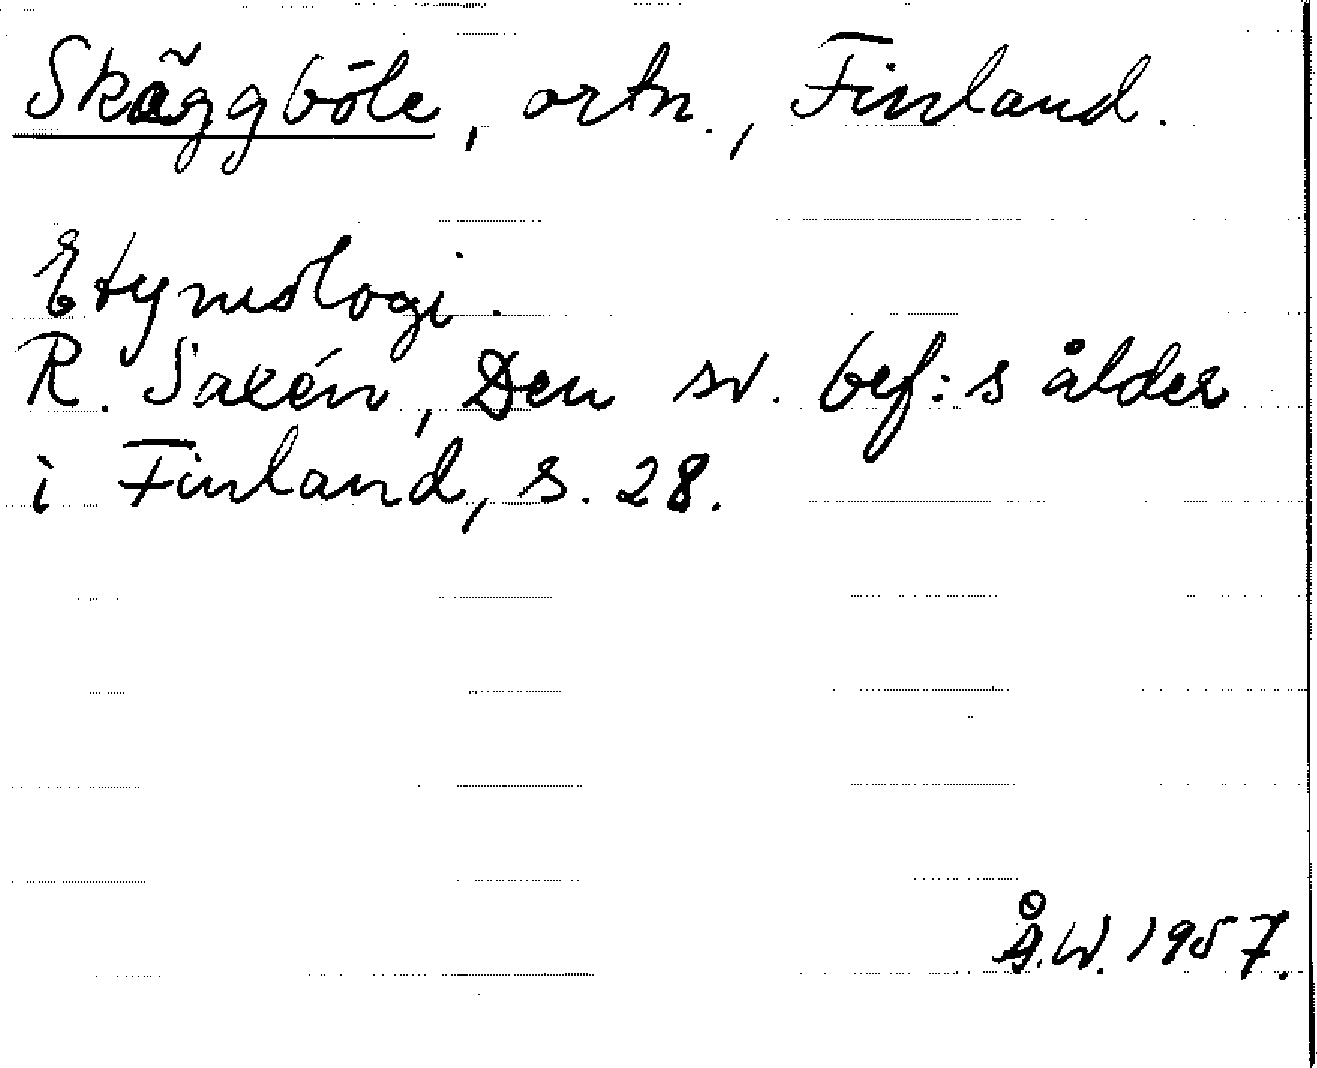 Skäggböle, ortn., Finland.
Etymologi.
R. Saxén, Den sv. bef:s ålder
i Finland, s. 28.
Å.W. 1957.